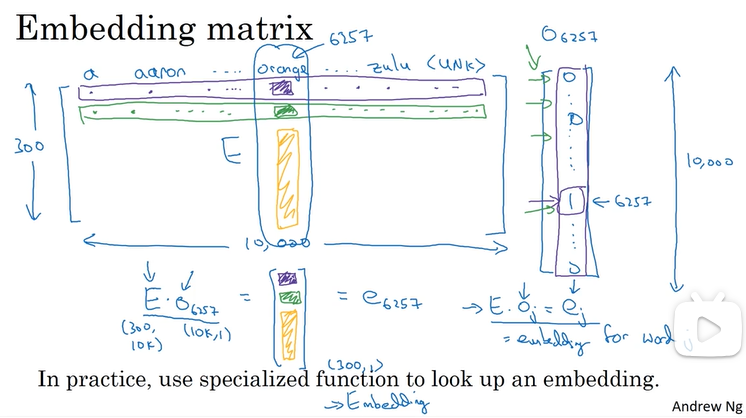 Embedding matrix
6257
O6257
a aaron .... orange .... zulu <UNK>
300
E
10,000
10,000
0
0
1
← 6257
0
E · O6257 = [ ] = e6257
(300, 10K) (10K, 1)
(300, 1)
→ E · Oj = ej
= embedding for word j
In practice, use specialized function to look up an embedding.
→ Embedding
Andrew Ng